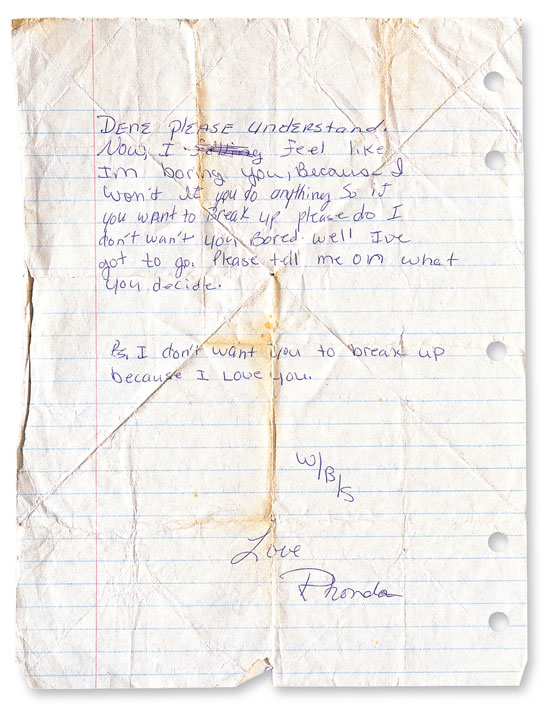 Dene please understand.
Now, I feel like
I'm boring you, Because I
won't let you do anything So if
you want to Break up please do I
don't wan't you Bored. well I've
got to go. Please tell me on what
you decide.
Ps, I don't want you to break up
because I Love you.
W/B/S
Love
Rhonda